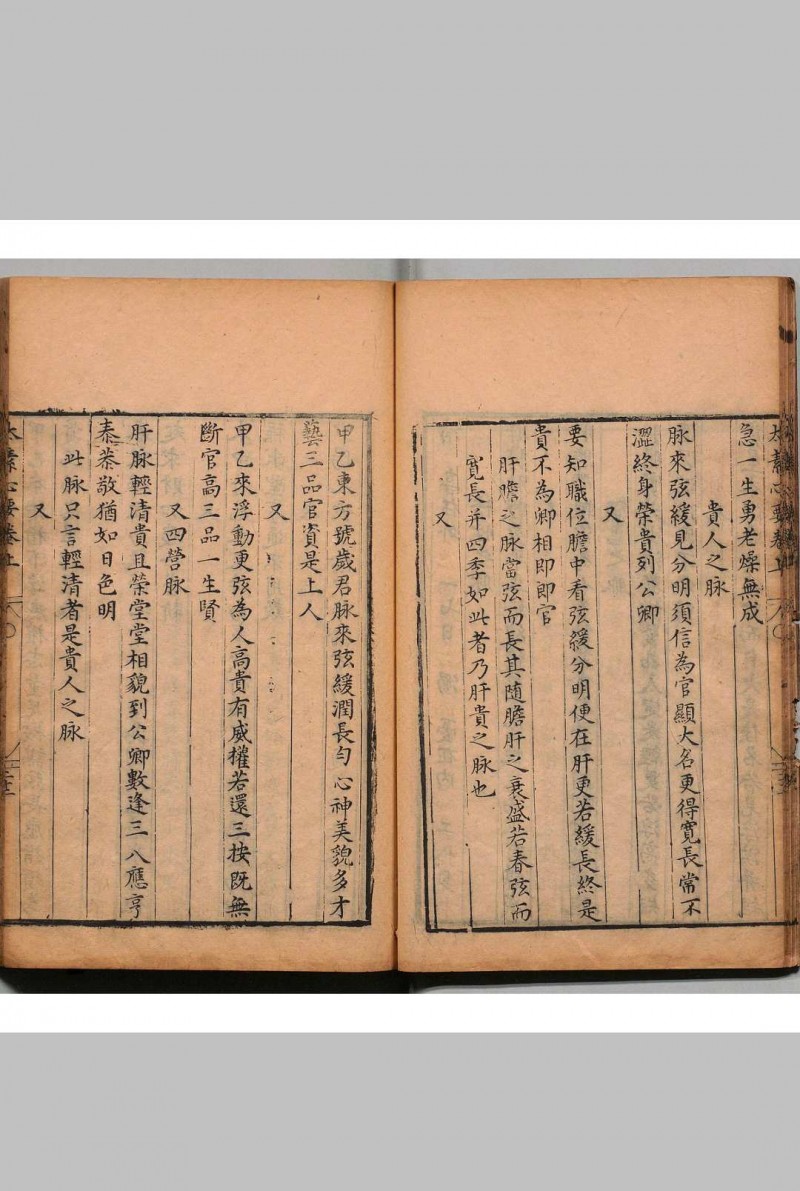 太素心要卷上
急一生勇老燥無成
貴人之脉
脉來弦緩見分明須信為官顯大名更得寛長常不
澀終身榮貴列公卿
又
要知職位膽中看弦緩分明便在肝更若緩長終是
貴不為卿相即即官
肝膽之脉當弦而長其随膽肝之衰盛若春弦而
寛長并四季如此者乃肝貴之脉也
又
甲乙東方號歲君脉來弦緩潤長勻心神美貌多才
藝三品官資是上人
又
甲乙來浮動更弦為人高貴有威權若還三按既無
斷官高三品一生賢
又四营脉
肝脉輕清貴且榮堂堂相貌到公卿數逢三八應亨
泰恭敬猶如日色明
此脉只言輕清者是貴人之脉
又
太素心要卷上